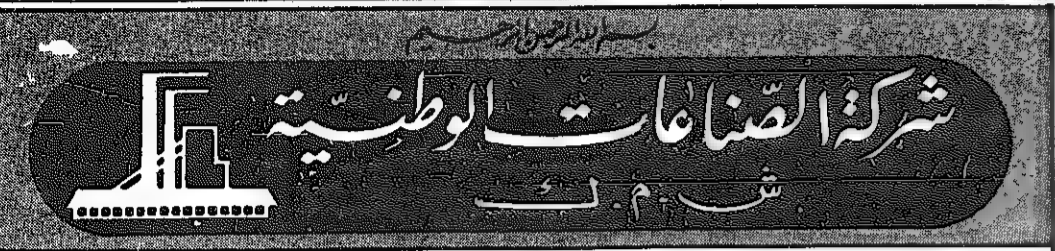 بسم الله الرحمن الرحيم
شركة الصّناعات الوطنيّة
ش.م.ك